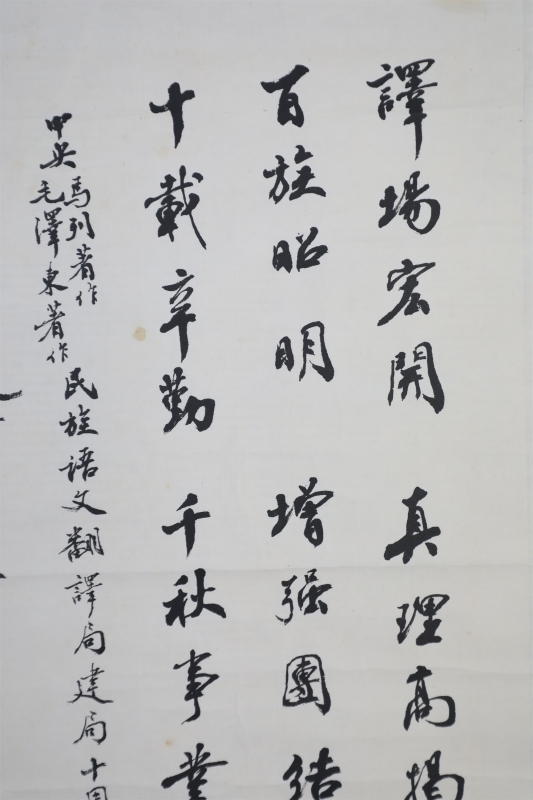 譯場宏開 真理高揭
百族昭明 增强團结
十載辛勤 千秋事業
中央馬列著作毛澤東著作民族語文翻譯局建局十周